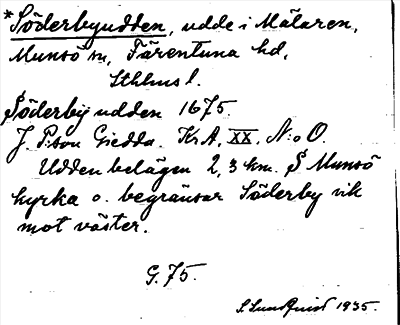 *Söderbyudden, udde i Mälaren,
Munsö sn, Färentuna hd,
Sthlms l.
Söderby udden 1675.
J. P:son Giedda. KrA, XX, N:o O.
Udden belägen 2,3 km. S Munsö
kyrka o. begränsar Söderby vik
mot väster.
G. 75.
S. Sundquist 1935.